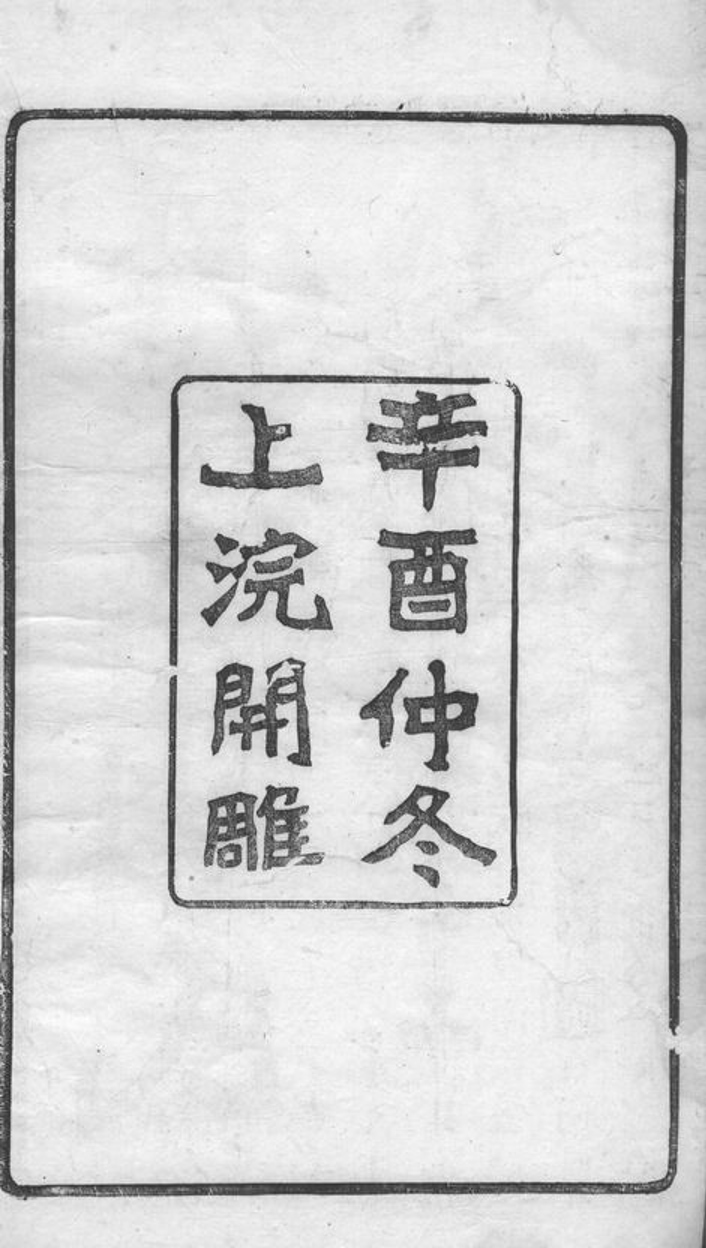 辛酉仲冬
上浣開雕